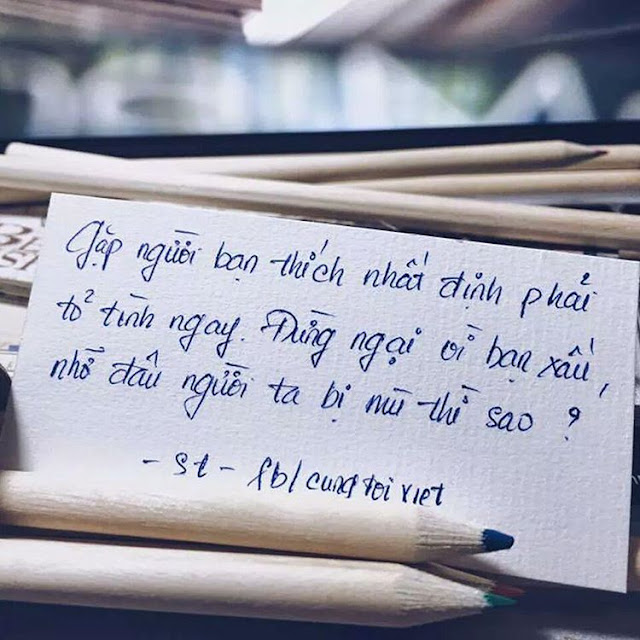 Gặp người bạn thích nhất định phải
tỏ tình ngay. Đừng ngại vì bạn xấu,
nhỡ đâu người ta bị mù thì sao ?
- st - fb/cungtoiviet